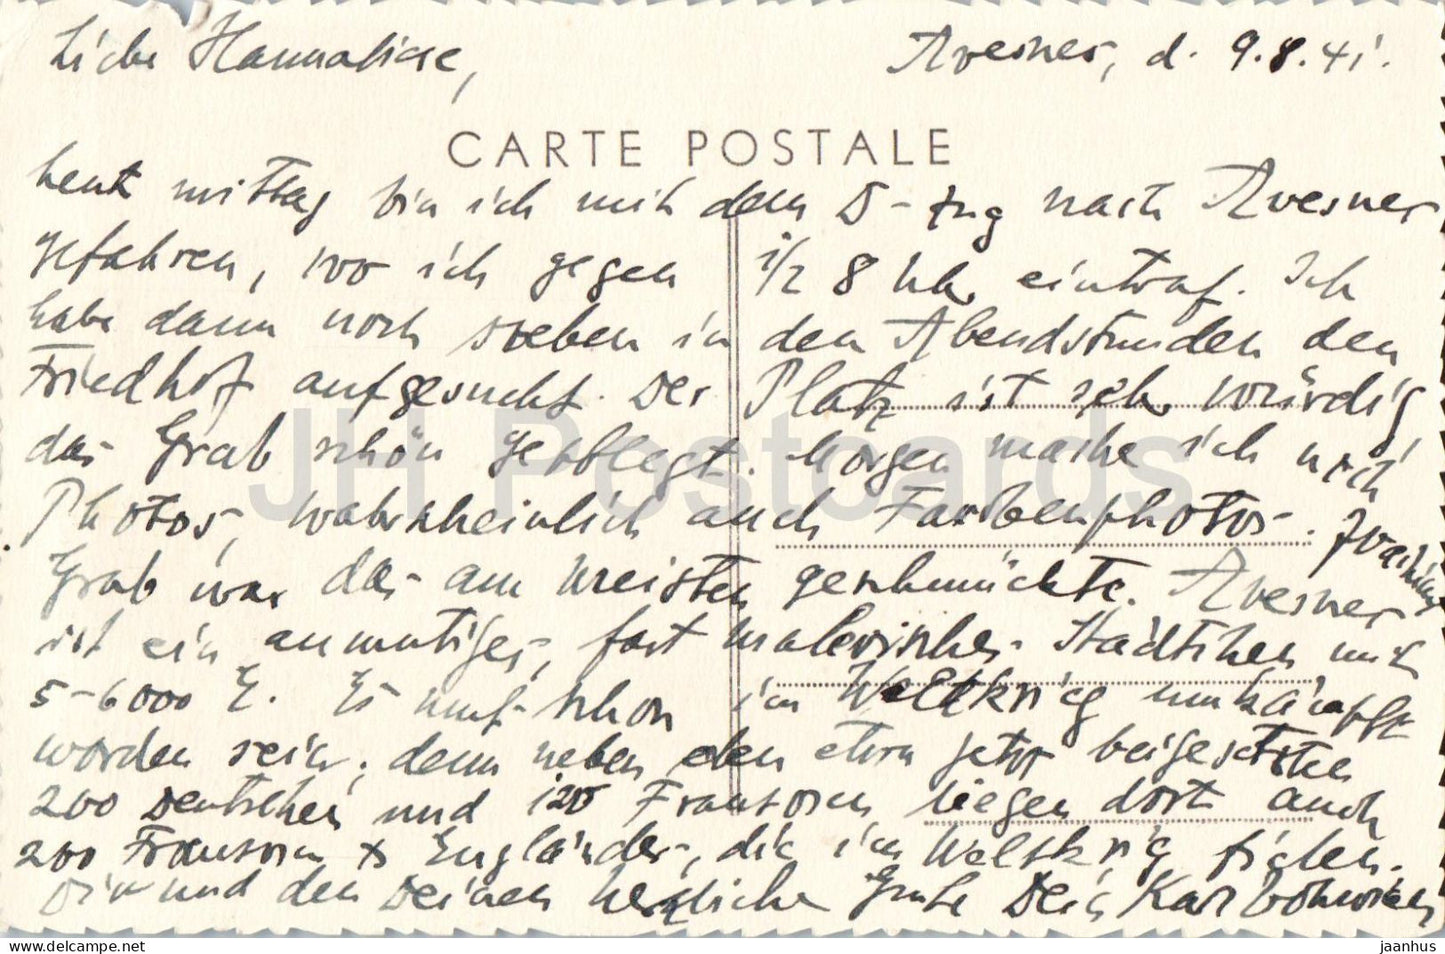 Liebe Hannaliese,
Avesnes, d. 9.8.41.
CARTE POSTALE
heut mittag bin ich mit dem D-Zug nach Avesnes
gefahren, wo ich gegen 1/2 8 Uhr eintraf. Ich
habe dann noch soeben in den Abendstunden den
Friedhof aufgesucht. Der Platz ist sehr würdig
das Grab schön gepflegt. Morgen mache ich noch
Photos, wahrscheinlich auch Farbenphotos.
Grab war das am meisten geschmückte. Avesnes
ist ein anmutiges, fast malerisches Städtchen mit
5-6000 E. Es muß schon im Weltkrieg umkämpft
worden sein, denn neben den etwa jetzt beigesetzten
200 Deutschen und 120 Franzosen liegen dort auch
200 Franzosen + Engländer, die im Weltkrieg fielen.
Dir und den Deinen herzliche Grüße Dein Karl
JH Postcards
www.delcampe.net
jaanhus